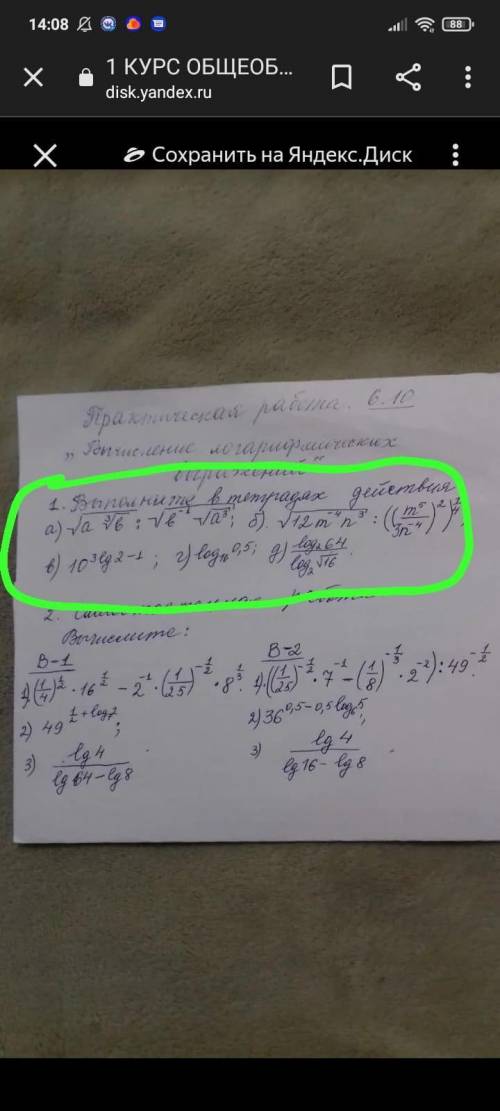 14:08 88
1 КУРС ОБЩЕОБ...
disk.yandex.ru
Сохранить на Яндекс.Диск
Практическая работа. 6.10
„Вычисление логарифмических
выражений"
1. Выполните в тетрадях действия
а) √a ∛b : √b⁻¹ √a³; б) √12m⁻⁴n³ : ((m⁵/3n⁻⁴)²)^(1/4);
в) 10^(3lg2-1); г) log 0,5; д) log₂64/log₂√16.
2. работа
Вычислите:
В-1 В-2
1) (1/4)^(1/2) · 16^(1/2) - 2⁻¹ · (1/25)^(-1/2) · 8^(1/3). 1) ((1/25)^(-1/2) · 7⁻¹ - (1/8)^(-1/3) · 2⁻²) : 49^(-1/2).
2) 49 ; 2) 36^(0,5-0,5log₆5);
3) lg4/lg64-lg8 3) lg4/lg16-lg8